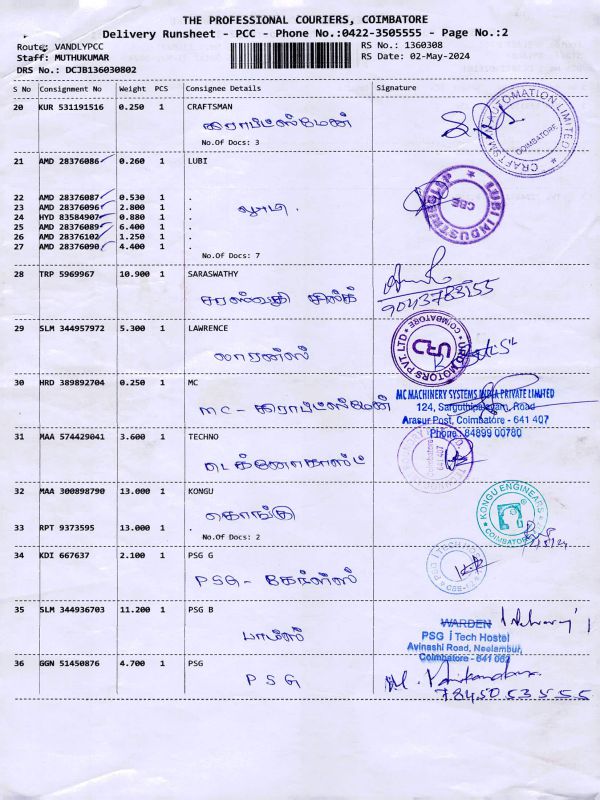 THE PROFESSIONAL COURIERS, COIMBATORE
Delivery Runsheet - PCC - Phone No.:0422-3505555 - Page No.:2
Route: VANDLYPCC RS No.: 1360308
Staff: MUTHUKUMAR RS Date: 02-May-2024
DRS No.: DCJB136030802
S No Consignment No Weight PCS Consignee Details Signature
20 KUR 531191516 0.250 1 CRAFTSMAN
கிராப்ட்ஸ்மேன்
No.Of Docs: 3
CRAFTSMAN AUTOMATION LIMITED COIMBATORE
21 AMD 28376086 0.260 1 LUBI
22 AMD 28376087 0.530 1 .
23 AMD 28376096 2.800 1 .
24 HYD 83584907 0.880 1 .
25 AMD 28376089 6.400 1 .
26 AMD 28376102 1.250 1 .
27 AMD 28376090 4.400 1 .
லுபி.
No.Of Docs: 7
LUBI INDUSTRIES LLP CBE
28 TRP 5969967 10.900 1 SARASWATHY
சரஸ்வதி சில்க்
9043783155
29 SLM 344957972 5.300 1 LAWRENCE
லாரன்ஸ்
URD MOTORS PVT LTD COIMBATORE
30 HRD 389892704 0.250 1 MC
MC - கிராப்ட்ஸ்மேன்
MC MACHINERY SYSTEMS INDIA PRIVATE LIMITED
124, Sarguthipalayam, Road
Arasur Post, Coimbatore - 641 407
Phone: 84899 00780
31 MAA 574429041 3.600 1 TECHNO
டெக்னோகாஸ்ட்
Coimbatore 641 407
32 MAA 300898790 13.000 1 KONGU
கொங்கு
33 RPT 9373595 13.000 1 .
No.Of Docs: 2
KONGU ENGINEARS COIMBATORE
34 KDI 667637 2.100 1 PSG G
PSG - கேர்ள்ஸ்
35 SLM 344936703 11.200 1 PSG B
பாய்ஸ்
WARDEN
PSG i Tech Hostel
Avinashi Road, Neelambur,
Coimbatore - 641 062
36 GGN 51450876 4.700 1 PSG
PSG
7845053555